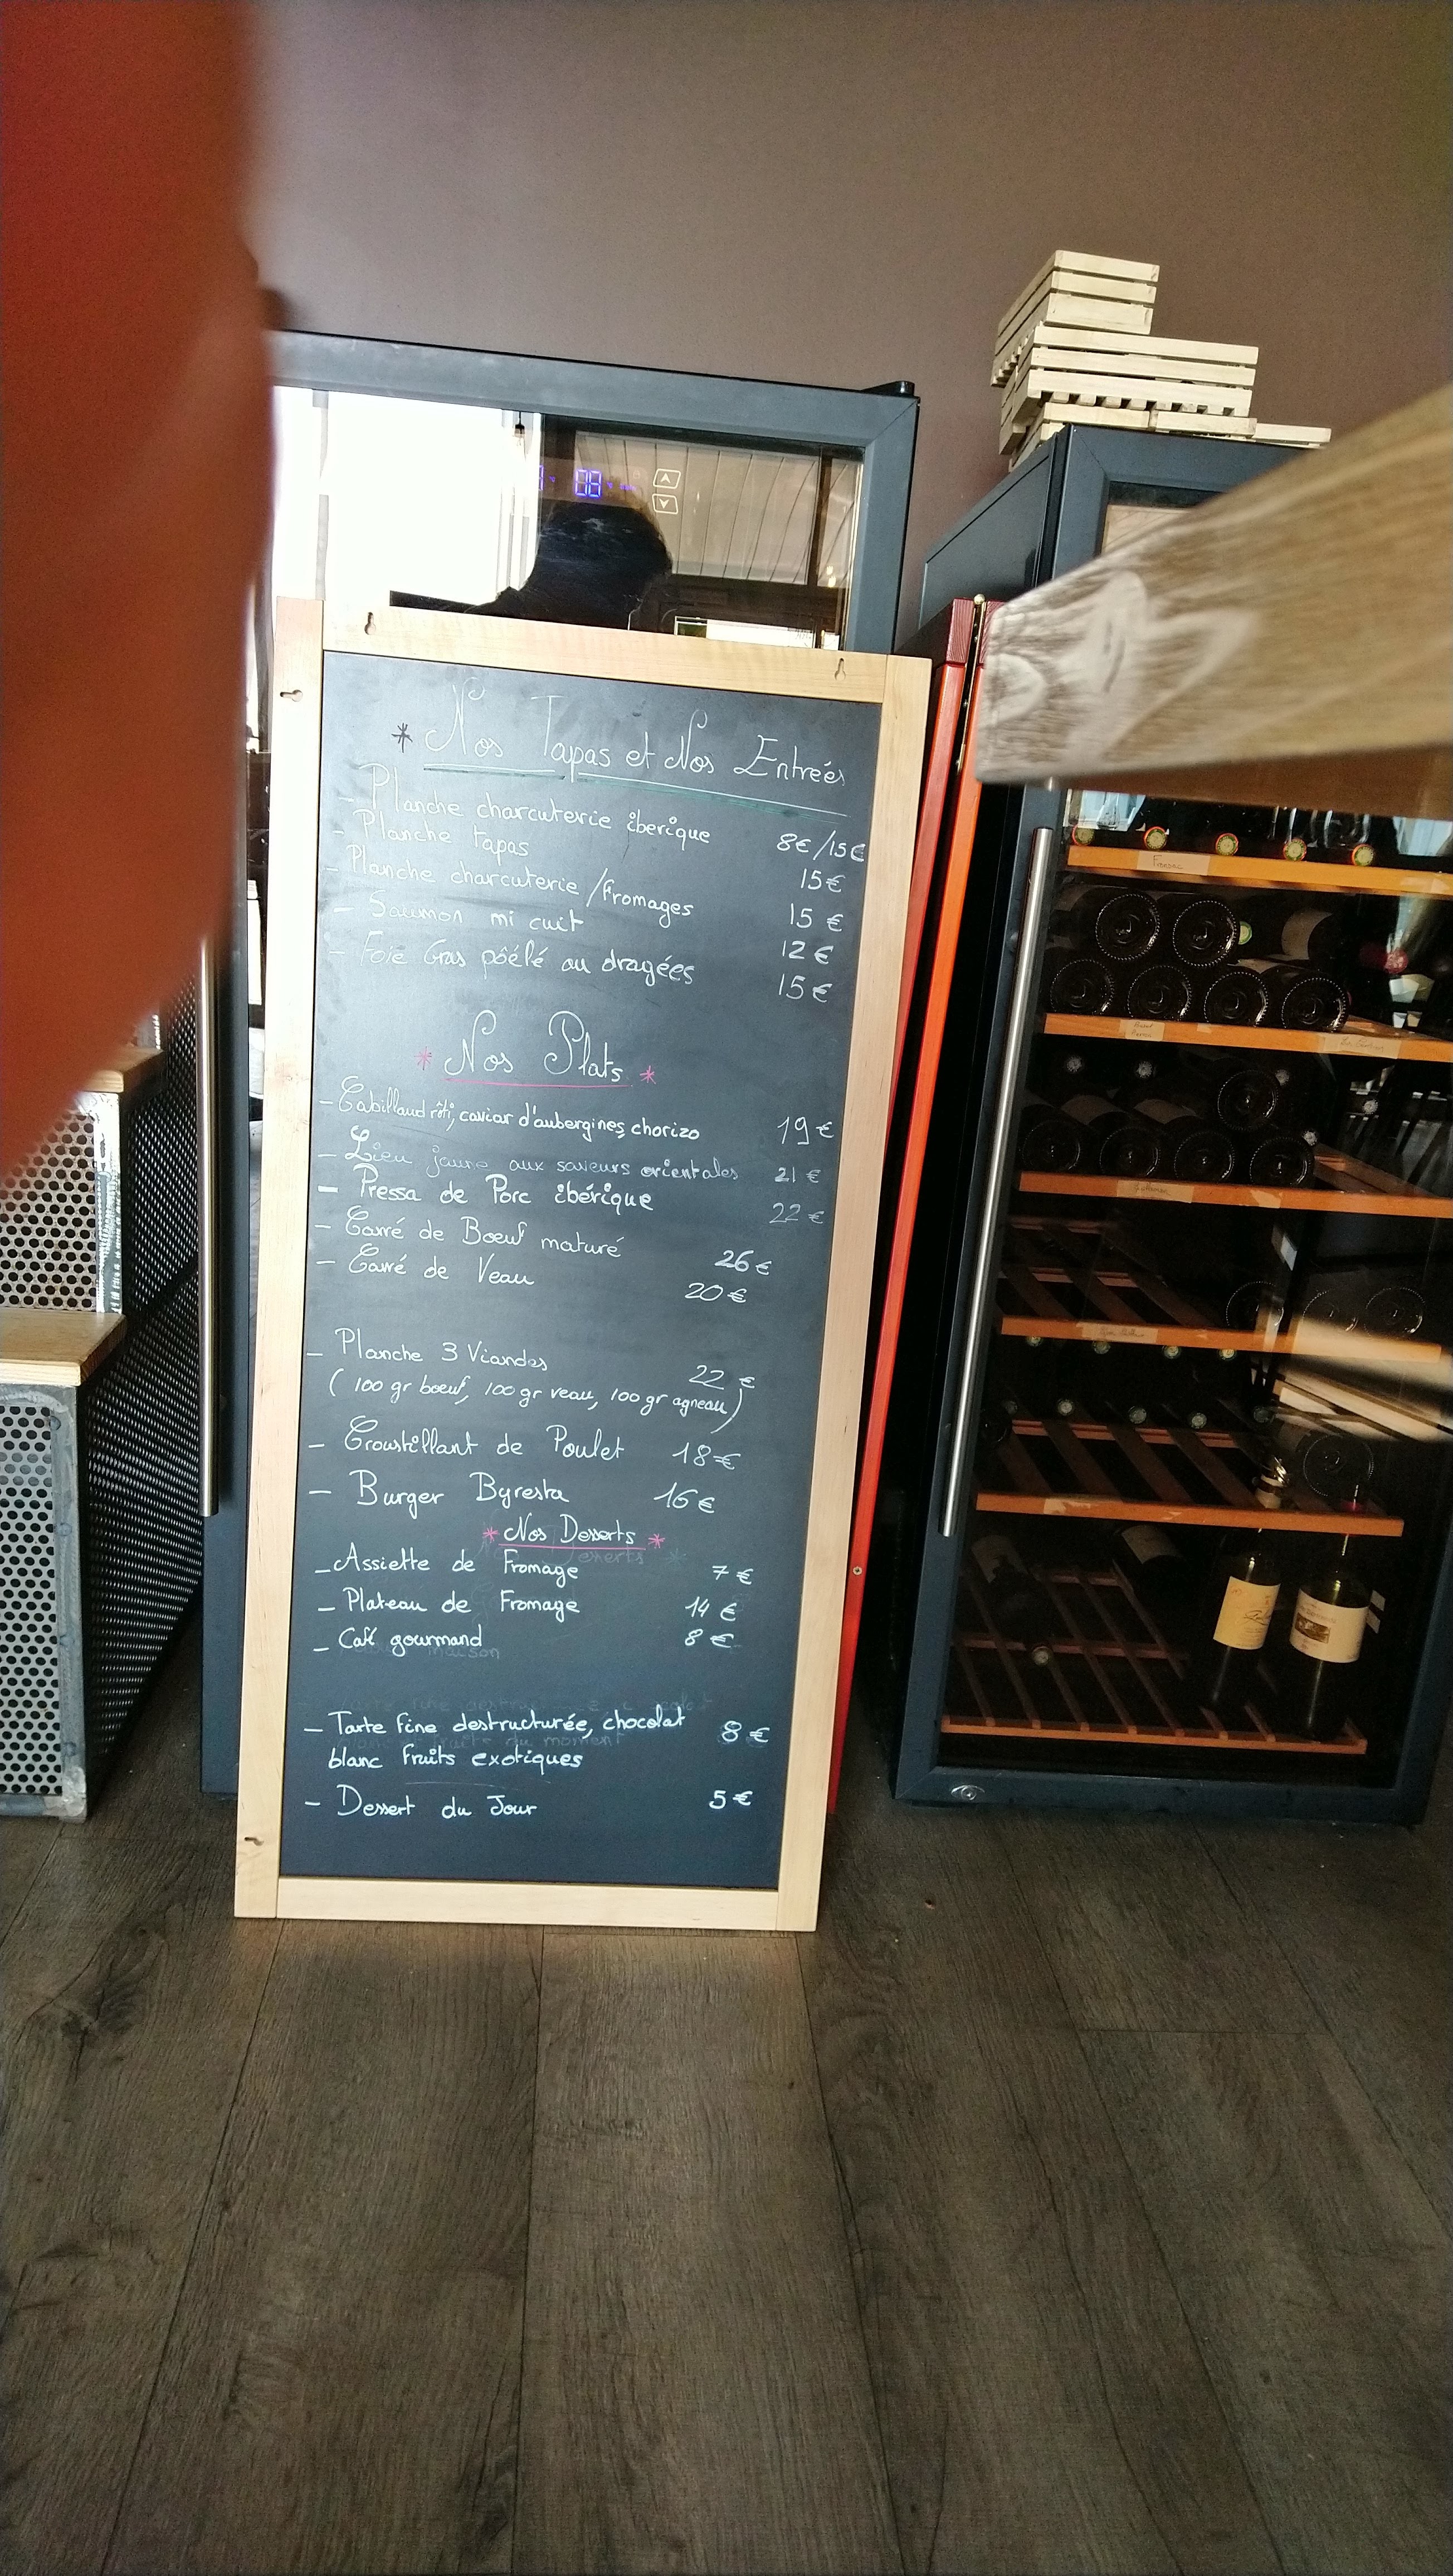 * Nos Tapas et Nos Entrées
- Planche charcuterie ibérique 8€/15€
- Planche tapas 15€
- Planche charcuterie/fromages 15 €
- Saumon mi cuit 12 €
- Foie Gras pôélé au dragées 15 €
* Nos Plats *
- Cabillaud rôti, caviar d'aubergines, chorizo 19 €
- Lieu jaune aux saveurs orientales 21 €
- Pressa de Porc ibérique 22 €
- Carré de Boeuf maturé 26 €
- Carré de Veau 20 €
- Planche 3 Viandes 22 €
( 100 gr boeuf, 100 gr veau, 100 gr agneau)
- Croustillant de Poulet 18 €
- Burger Byresta 16 €
* Nos Desserts *
- Assiette de Fromage 7 €
- Plateau de Fromage 14 €
- Café gourmand 8 €
- Tarte fine destructurée, chocolat 8 €
blanc fruits exotiques
- Dessert du Jour 5 €
08
Fronsac